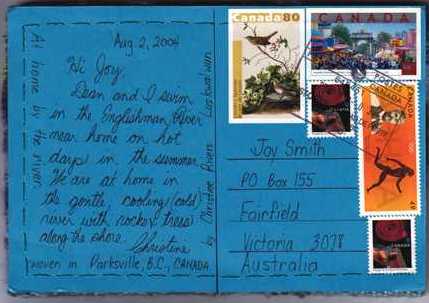 Aug 2, 2004
Hi Joy,
Dean and I swim
in the Englishman River
near home on hot
days in the summer.
We are at home in
the gentle, cooling (cold)
river with rocks & trees
along the shore.
Christine
woven in Parksville, B.C., CANADA
At home by the river
by Christine
Canada 80
CANADA
POSTES
CANADA
Joy Smith
PO Box 155
Fairfield
Victoria 3078
Australia
49
CANADA